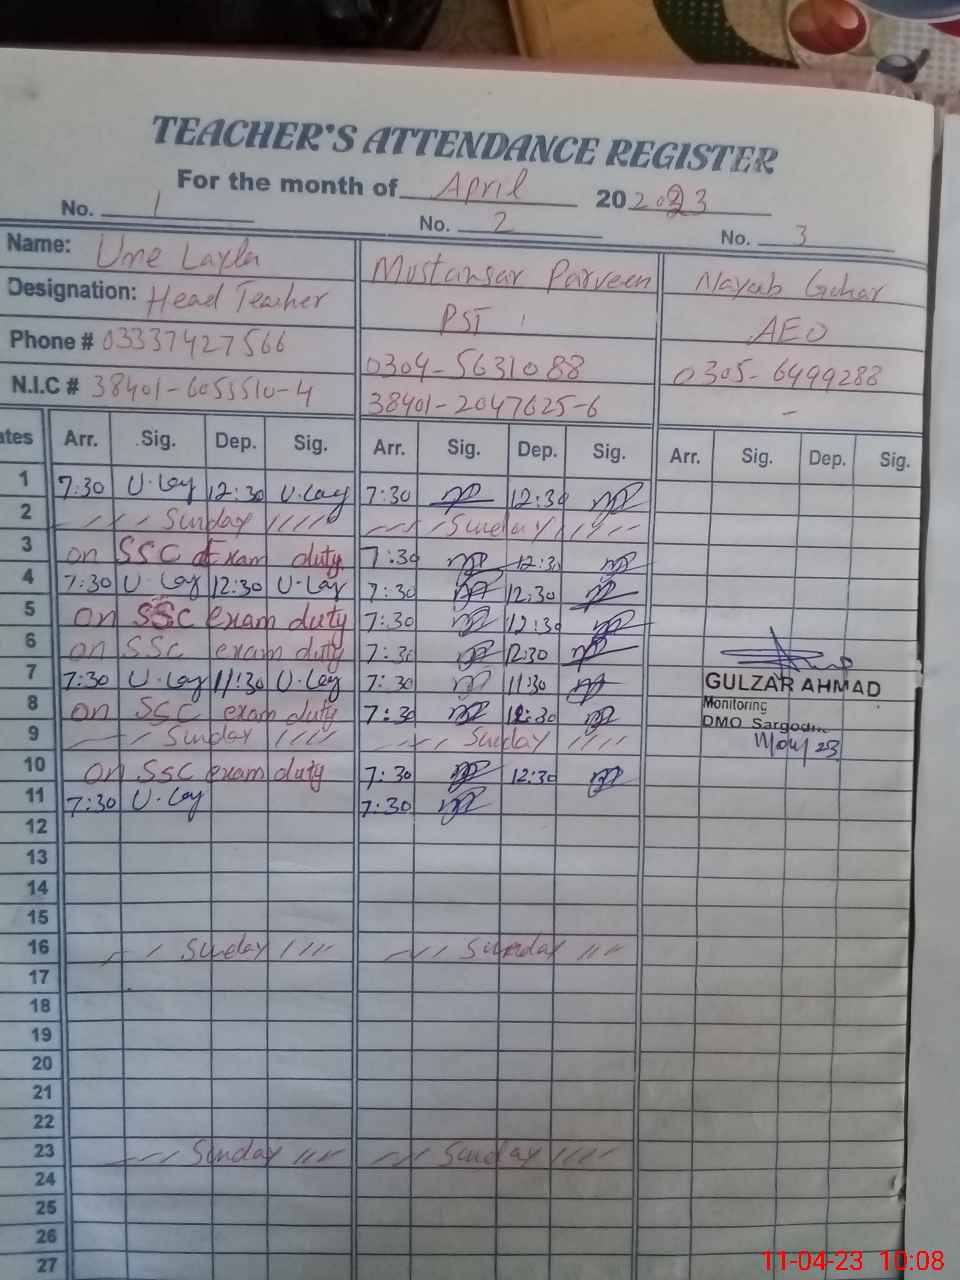 TEACHER'S ATTENDANCE REGISTER
For the month of April 20 2023
No. 1 No. 2 No. 3
Name: Ume Layla Mustansar Parveen Nayab Gohar
Designation: Head Teacher PST AEO
Phone # 03337427566 0304-5631088 0305-6499288
N.I.C # 38401-6053510-4 38401-2047625-6 -
ates Arr. Sig. Dep. Sig. Arr. Sig. Dep. Sig. Arr. Sig. Dep. Sig.
1 7:30 U.Lay 12:30 U.Lay 7:30 12:30
2 Sunday Sunday
3 on SSC Exam duty 7:30 12:3
4 7:30 U.Lay 12:30 U.Lay 7:30 12:30
5 on SSC exam duty 7:30 12:30
6 on SSC exam duty 7:30 12:30
7 7:30 U.Lay 11:30 U.Lay 7:30 11:30
GULZAR AHMAD
8 on SSC exam duty 7:30 12:30
Monitoring
DMO Sargodha
9 Sunday Sunday
10 on SSC exam duty 7:30 12:30
11 7:30 U.Lay 7:30
12
13
14
15
16 Sunday Sunday
17
18
19
20
21
22
23 Sunday Sunday
24
25
26
27
11-04-23 10:08